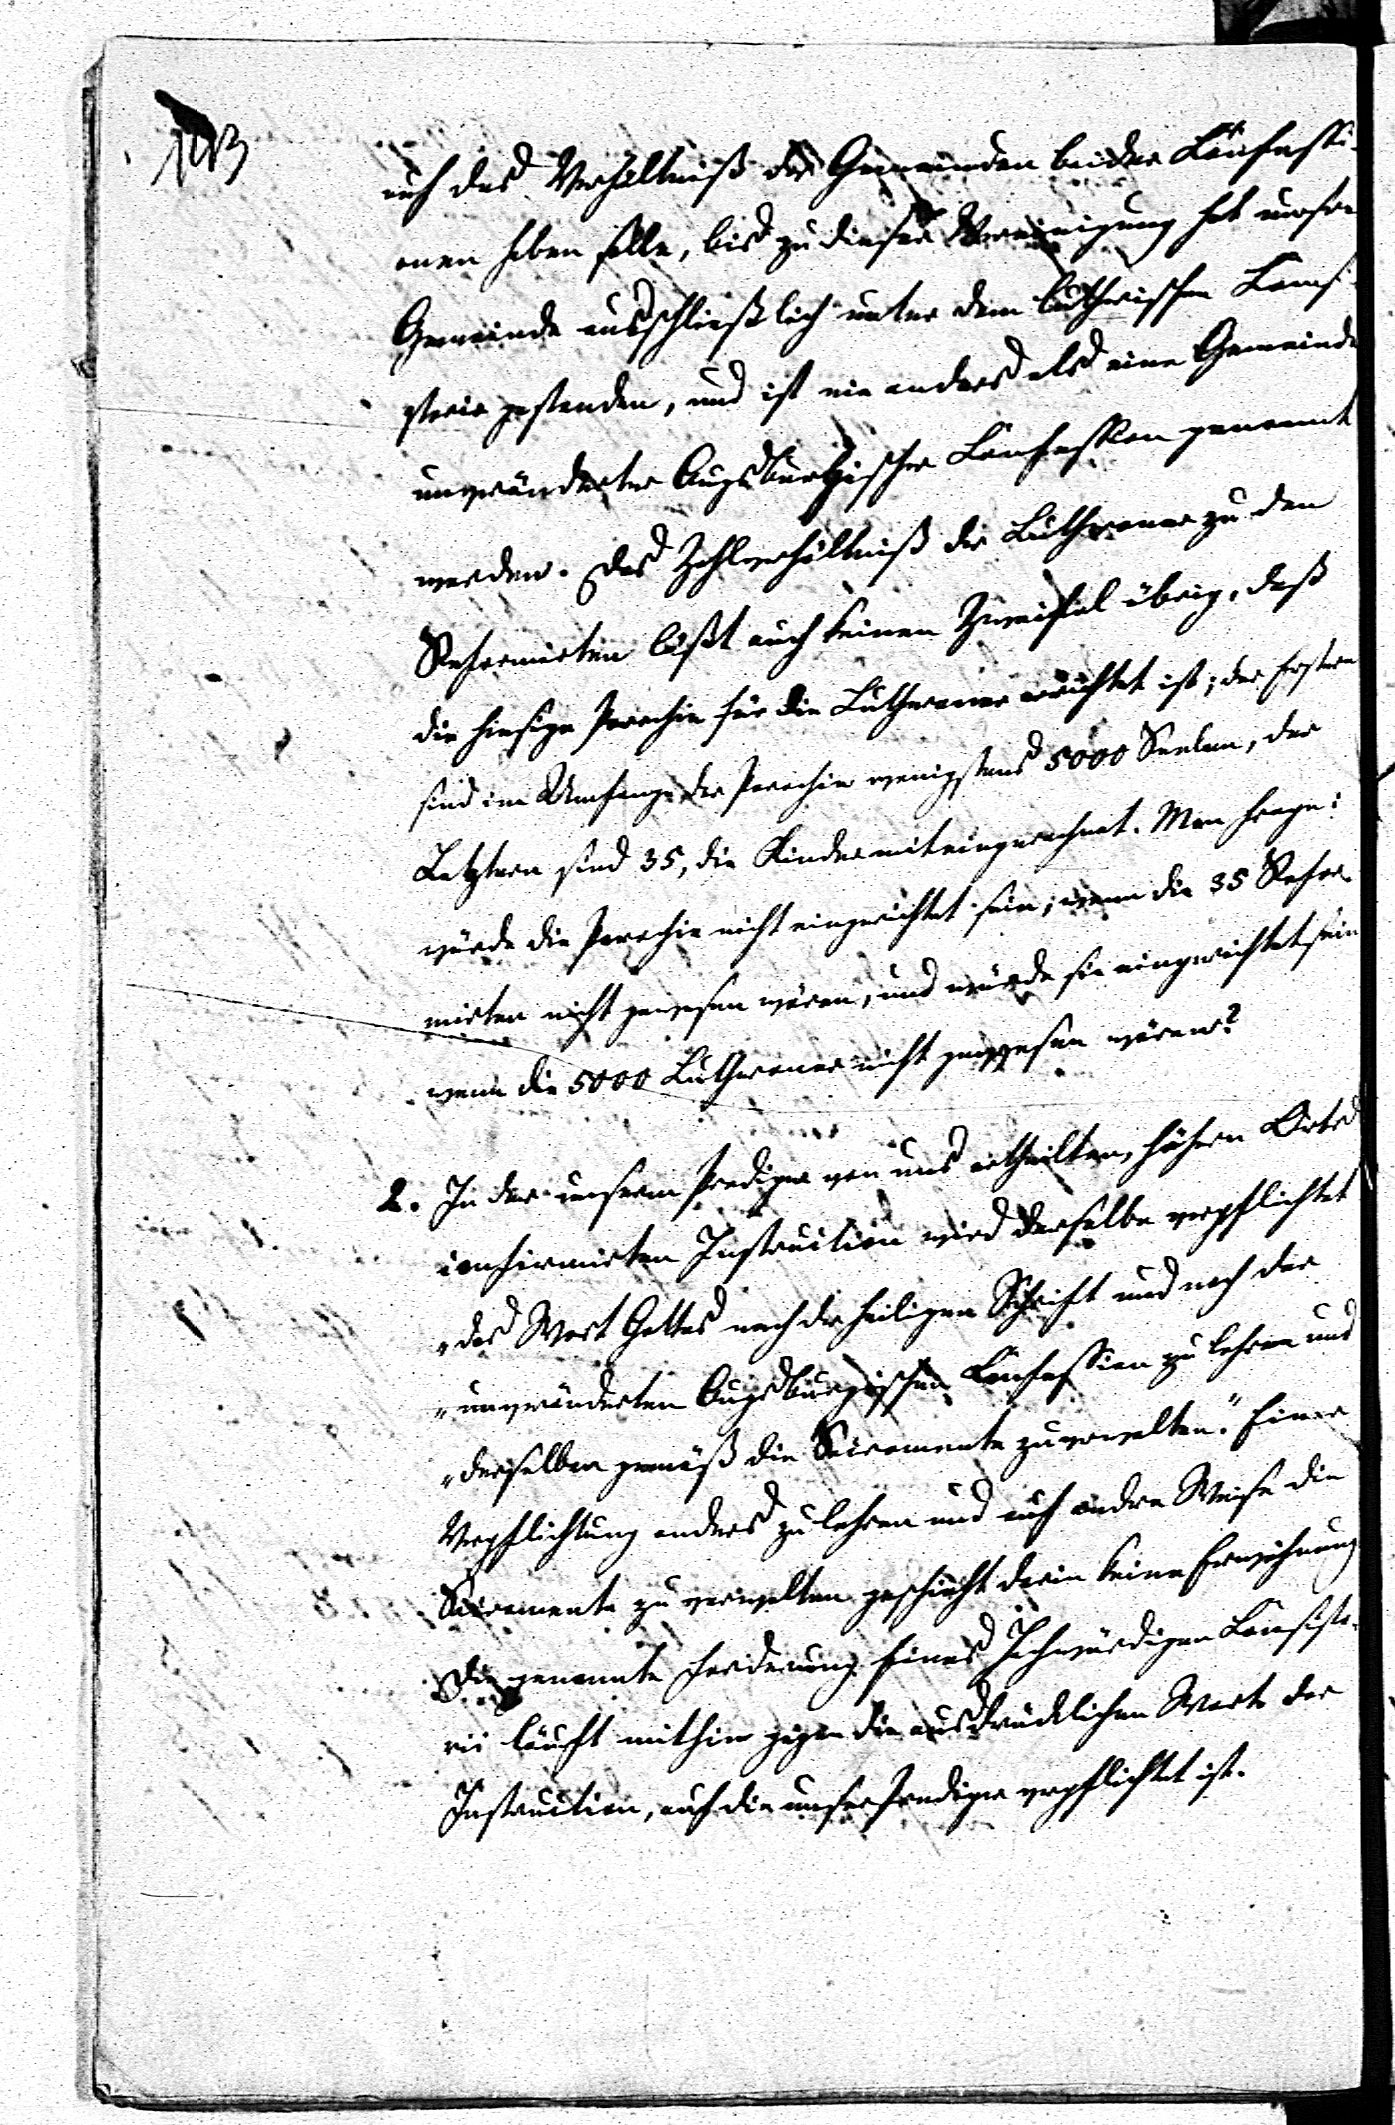 143
auf das Verhältniß der Gemeinden beider Confessi-
onen haben solle, bis zu dieser Vereinigung hat unsere
Gemeinde ausschließlich unter dem lutherischen Consi-
storio gestanden, und ist nie anders als eine Gemeinde
unveränderter Augsburgischer Confession genannt
worden. Das Zahlverhältniß der Lutheraner zu den
Reformirten läßt auch keinen Zweifel übrig, daß
die hiesige Parochie für die Lutheraner errichtet ist; der Erstern
sind im Umfange der Parochie wenigstens 5000 Seelen, der
Letztern sind 35, die Kinder miteingerechnet. Man frage:
würde die Parochie nicht eingerichtet sein, wenn die 35 Refor-
mirten nicht gewesen wären, und würde sie eingerichtet sein
wenn die 5000 Lutheraner nicht gewesen wären?
2. In der unserm Prediger von uns ertheilten, höhern Orts
confirmirten Instruction wird derselbe verpflichtet
„das Wort Gottes nach der heiligen Schrift und nach der
„unveränderten Augsburgischen Confession zu lehren und
„derselben gemäß die Sacramente zu verwalten." Einer
Verpflichtung anders zu lehren und auf andre Weise die
Sacramente zu verwalten geschieht darin keine Erwähnung
Die genannte Forderung Eines Hochwürdigen Consisto-
rii läuft mithin gegen die ausdrücklichen Worte der
Instruction, auf die unser Prediger verpflichtet ist.